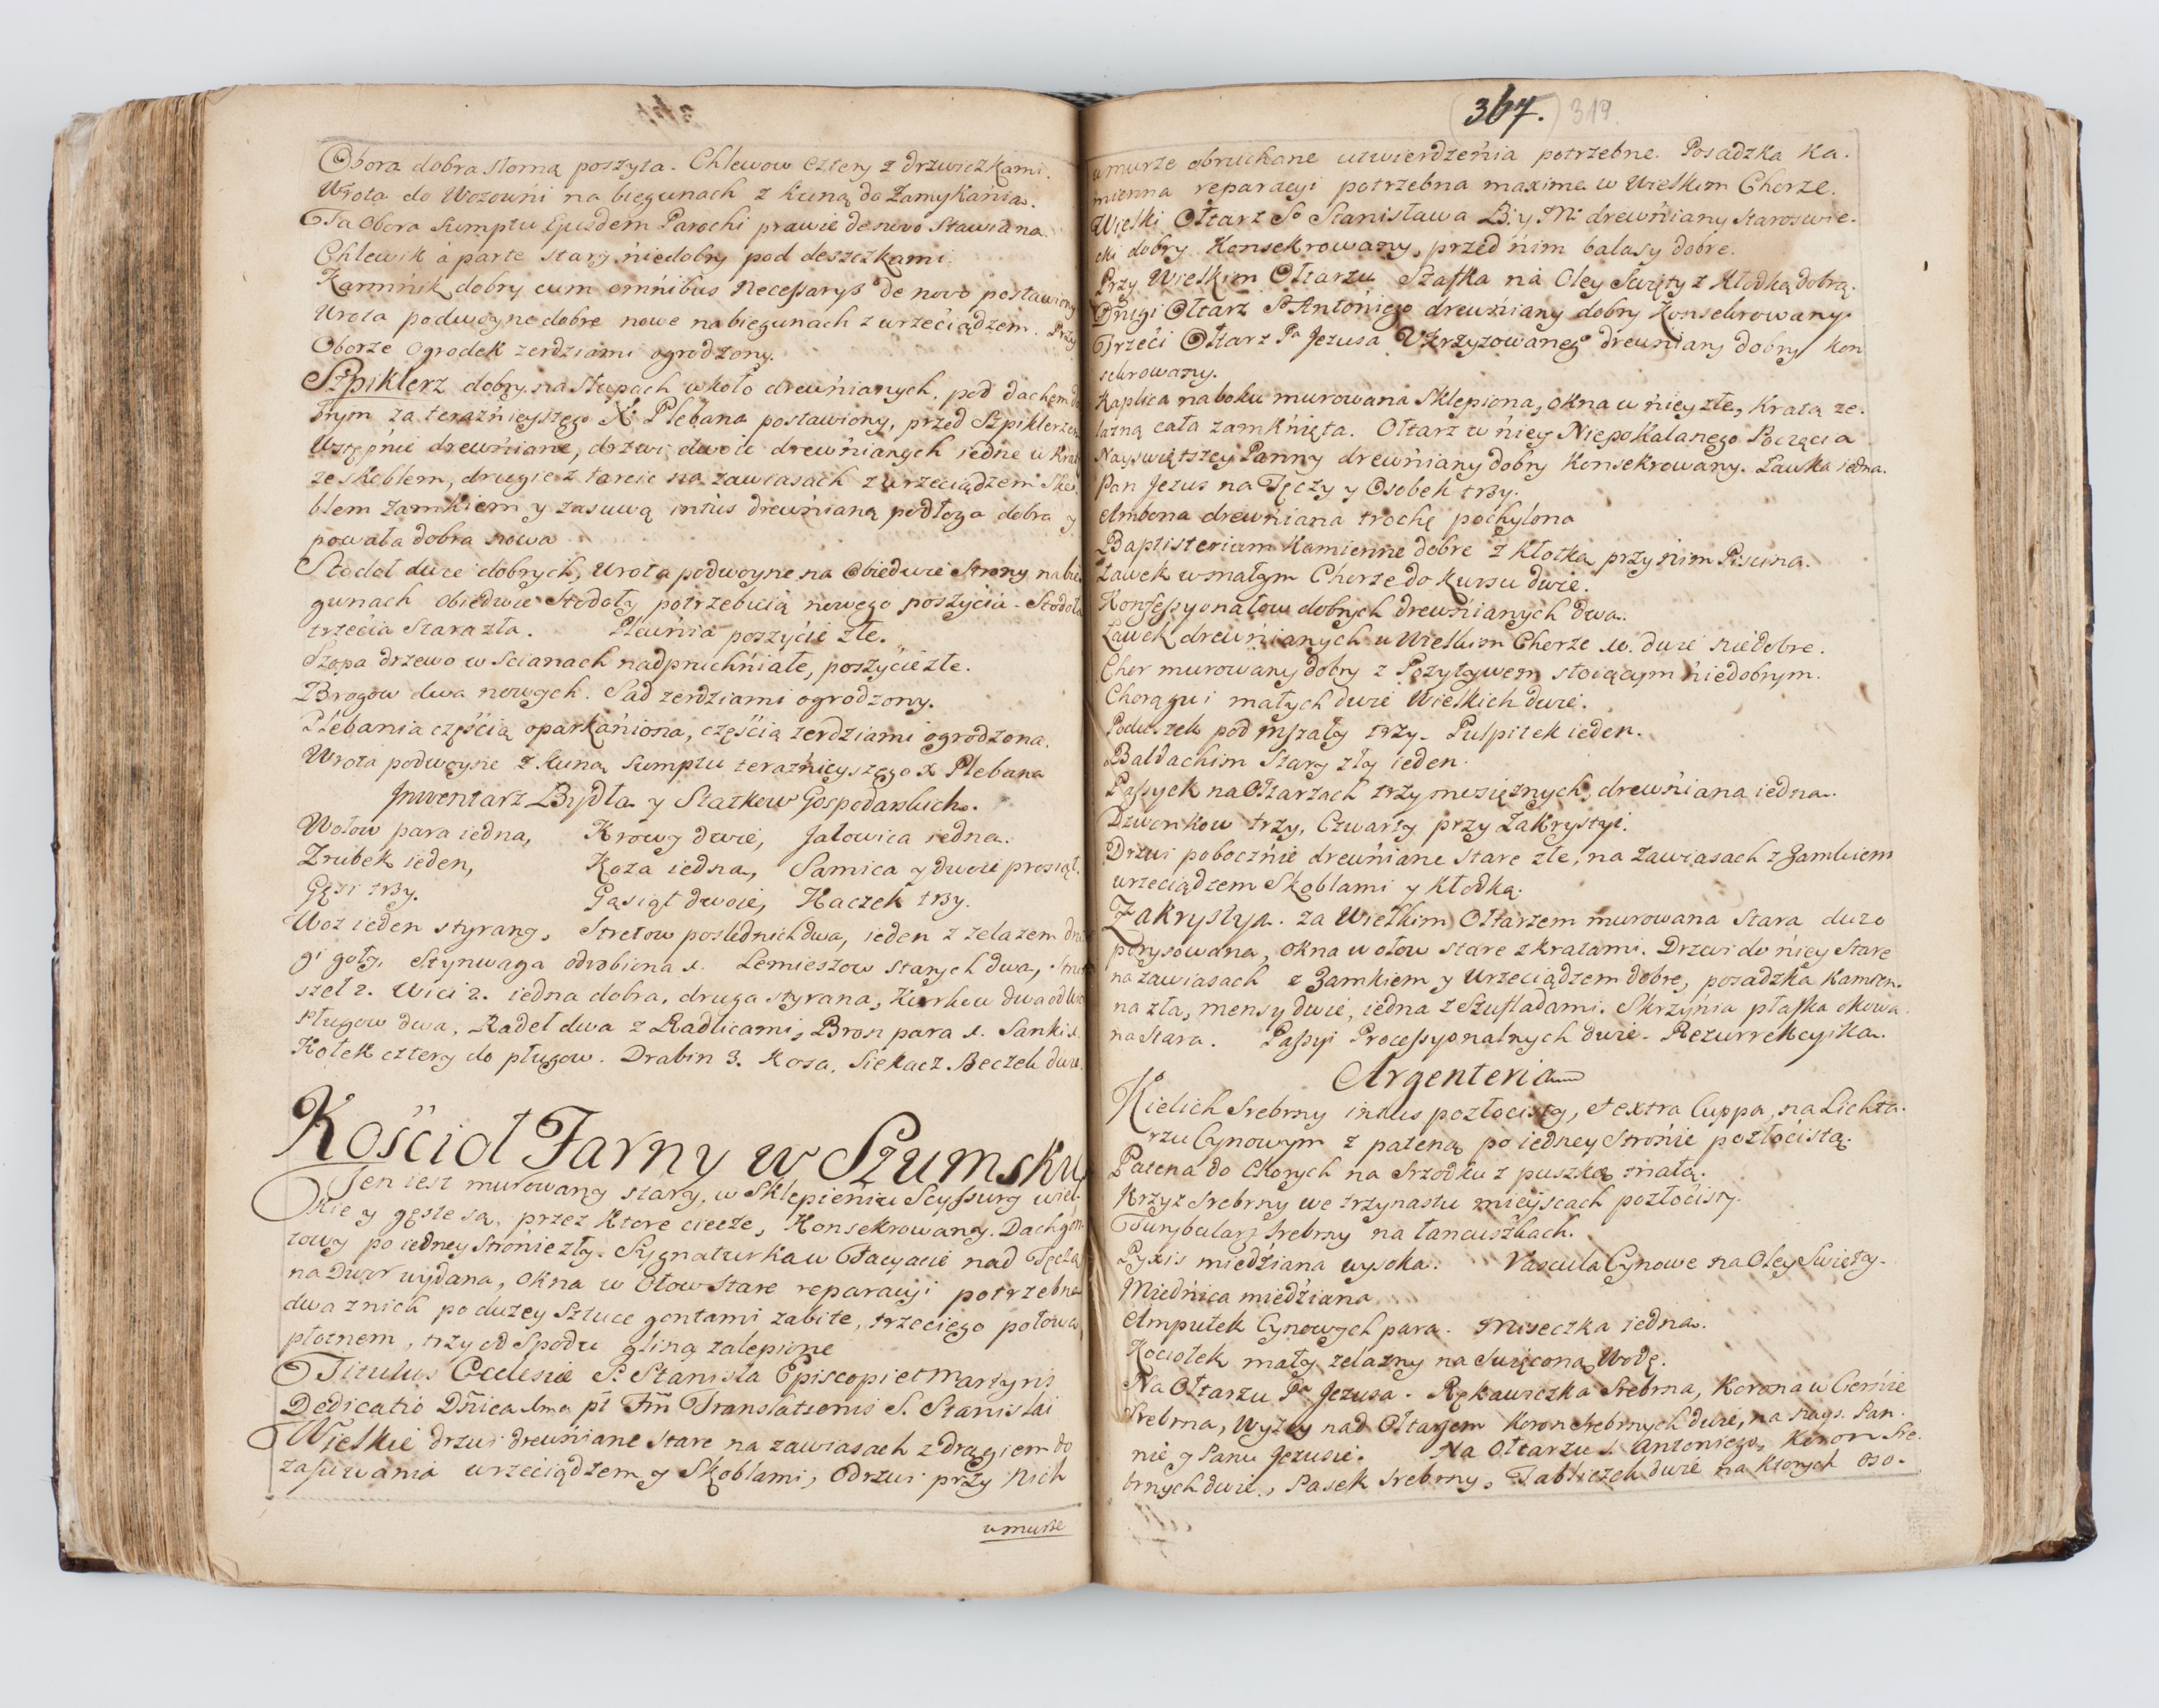 Obora dobra słomą poszyta. Chlewow cztery z drzwiczkami.
Wrota do Wozowni na biegunach z kuną do Zamykánia.
Ta Obora sumptu Ejusdem Parochi prawie de novo stawiana.
Chlewik á parte stary niedobry pod deszczkami
Karmńik dobry cum omńibus Necessarys de novo postawiony
Wrota podwoyne dobre nowe na biegunach z wrzeciądzem. Przy
Oborze Ogrodek zerdziami ogrodzony.
Szpiklerz dobry na słupach wkoło drewńianych, pod dachem do
brym za teraznieyszego X. Plebana postawiony, przed Szpiklerzem
Wstępnie drewńiane, drzwi dwoie drewńianych iedne w krat
ze skoblem, drugie z tarcic na zawiasach z wrzeciądzem Sko
blem Zamkiem y zasuwą intus drewńianą podłoga dobra y
powała dobra nowa
Stodoł dwie dobrych, Wrota podwoyne na Obiedwie Strony na bie
gunach Obiedwie Stodoły potrzebuią nowego poszycia. Stodoła
trzecia Stara zła. Plewńia poszycie złe.
Szopa drzewo w Scianach nadpruchńiałe, poszycie złe.
Brogow dwa nowych. Sad zerdziami ogrodzony.
Plebania częścią oparkániona, częścią zerdziami ogrodzona.
Wrota podwoyne z kuną sumptu teraznieyszego X Plebana
Inwentarz Bydła y Statkow Gospodarskich.
Wołow para iedna, Krowy dwie, Jałowica iedna.
Zrubek ieden, Koza iedna, Samica y dwoie prosiąt.
Gęsi trzy. Gąsiąt dwoie, Kaczek trzy.
Woz ieden styrany, Stretow poslednich dwa, ieden z zelazem dru
gi goły, Sztynwaga odrobiona 1. Lemieszow starych dwa,
szeł 2. Wici 2. iedna dobra, druga styrana, Kurkow dwa od
Pługow dwa, Radeł dwa z Radlicami, Bron para 1. Sanki 1.
Kołek cztery do pługow. Drabin 3. Kosa, Siekacz. Beczek dwie.
Kościoł Farny w Szumsku
Ten iest murowany stary, w Sklepieniu Scyssury wiel-
kie y gęste są, przez ktore ciecze, Konsekrowany. Dach gon-
towy po iedney Stronie zły. Sygnaturka w Facyacie nad Tęczą
na Dwor wydana, Okna w Ołow Stare reparacyi potrzebne
dwa z nich po duzey Sztuce gontami zabite, trzeciego połowa
płotnem, trzy od Spodu gliną zalepione
Titulus Ecclesiæ S. Stanisla Episcopi et Martyris
Dedicatio Dnica 1ma pt Fm Translationis S. Stanislai
Wielkie drzwi drewńiane stare na zawiasach z drągiem do
zasuwania wrzeciądzem y Skoblami, Odrzwi przy nich
w murze
367. 319.
w murze obruchane utwierdzeńia potrzebne. Posadzka Ka-
mienna reparacyi potrzebna maxime w Wielkim Chorze.
Wielki Ołtarz So Stanisława B: y M: drewńiany staroswie-
cki dobry Konsekrowany, przed nim balasy dobre.
Przy Wielkim Ołtarzu Szafka ná Oley Swięty z Kłodką dobrą.
Drugi Ołtarz So Antoniego drewńiany dobry Konsekrowany.
Trzeći Ołtarz Pa Jezusa Ukrzyzowanego drewńiany dobry Kon
sekrowany.
Kaplica na boku murowana Sklepiona, Okna w niey złe, Kratą ze-
lazną cała zamknięta. Ołtarz w niey Niepokalanego Poczęcia
Nayswiętszey Panny drewńiany dobry Konsekrowany. Ławka iedna.
Pan Jezus na Tęczy y Osobek trzy.
Ambona drewńiana trochę pochylona
Baptisterium Kamienne dobre z Kłotką przy nim Piscina.
Ławek w małym Chorze do Kursu dwie.
Konfessyonałow dobrych drewńianych dwa.
Ławek drewńianych w Wielkim Chorze 10. dwie niedobre.
Chor murowany dobry z Pozytywem stoiącym niedobrym.
Chorągwi małych dwie Wielkich dwie.
Poduszek pod mszały trzy. Pulpitek ieden.
Baldachim Stary zły ieden.
Passyek na Ołtarzach trzy mosiężnych, drewńiana iedna.
Dzwonkow trzy, Czwarty przy Zakrystyi.
Drzwi pobocznie drewńiane stare złe, na Zawiasach z Zamkiem
wrzeciądzem Skoblami y Kłodką.
Zakrystya. za Wielkim Ołtarzem murowana Stara duzo
porysowana, Okna w ołow stare z kratami. Drzwi do niey Stare
na zawiasach z Zamkiem y Wrzeciądzem dobre, posadzka Kamien-
na zła, mensy dwie, iedna z Szufladami. Skrzynia płaska okowa
na stara. Passyi Processyonalnych dwie. Rezurrekcyika.
Argenteria
Kielich Srebrny intus pozłocisty, et extra Cuppa, na Lichta-
rzu Cynowym z pateną po iedney stronie pozłocistą.
Patena do Chorych na Srzodku z puszką małą.
Krzyz Srebrny we trzynastu mieyscach pozłocisty.
Turybularz Srebrny na łancuszkach.
Pyxis miedźiana wysoka. Vascula Cynowe na Oley Swięty.
Miednica miedźiana
Ampułek Cynowych para. Miseczka iedna.
Kociołek mały zelazny na Swięconą Wodę.
Na Ołtarzu Pa Jezusa. Rękawiczka Srebrna, Korona w Ciernie
Srebrna, Wyzey nad Ołtarzem Koron Srebrnych dwie, na Nays. Pan-
nie y Panu Jezusie. Na Ołtarzu S. Antoniego, Koron Sre-
brnych dwie, Pasek Srebrny, Tabliczek dwie na ktorych oso-